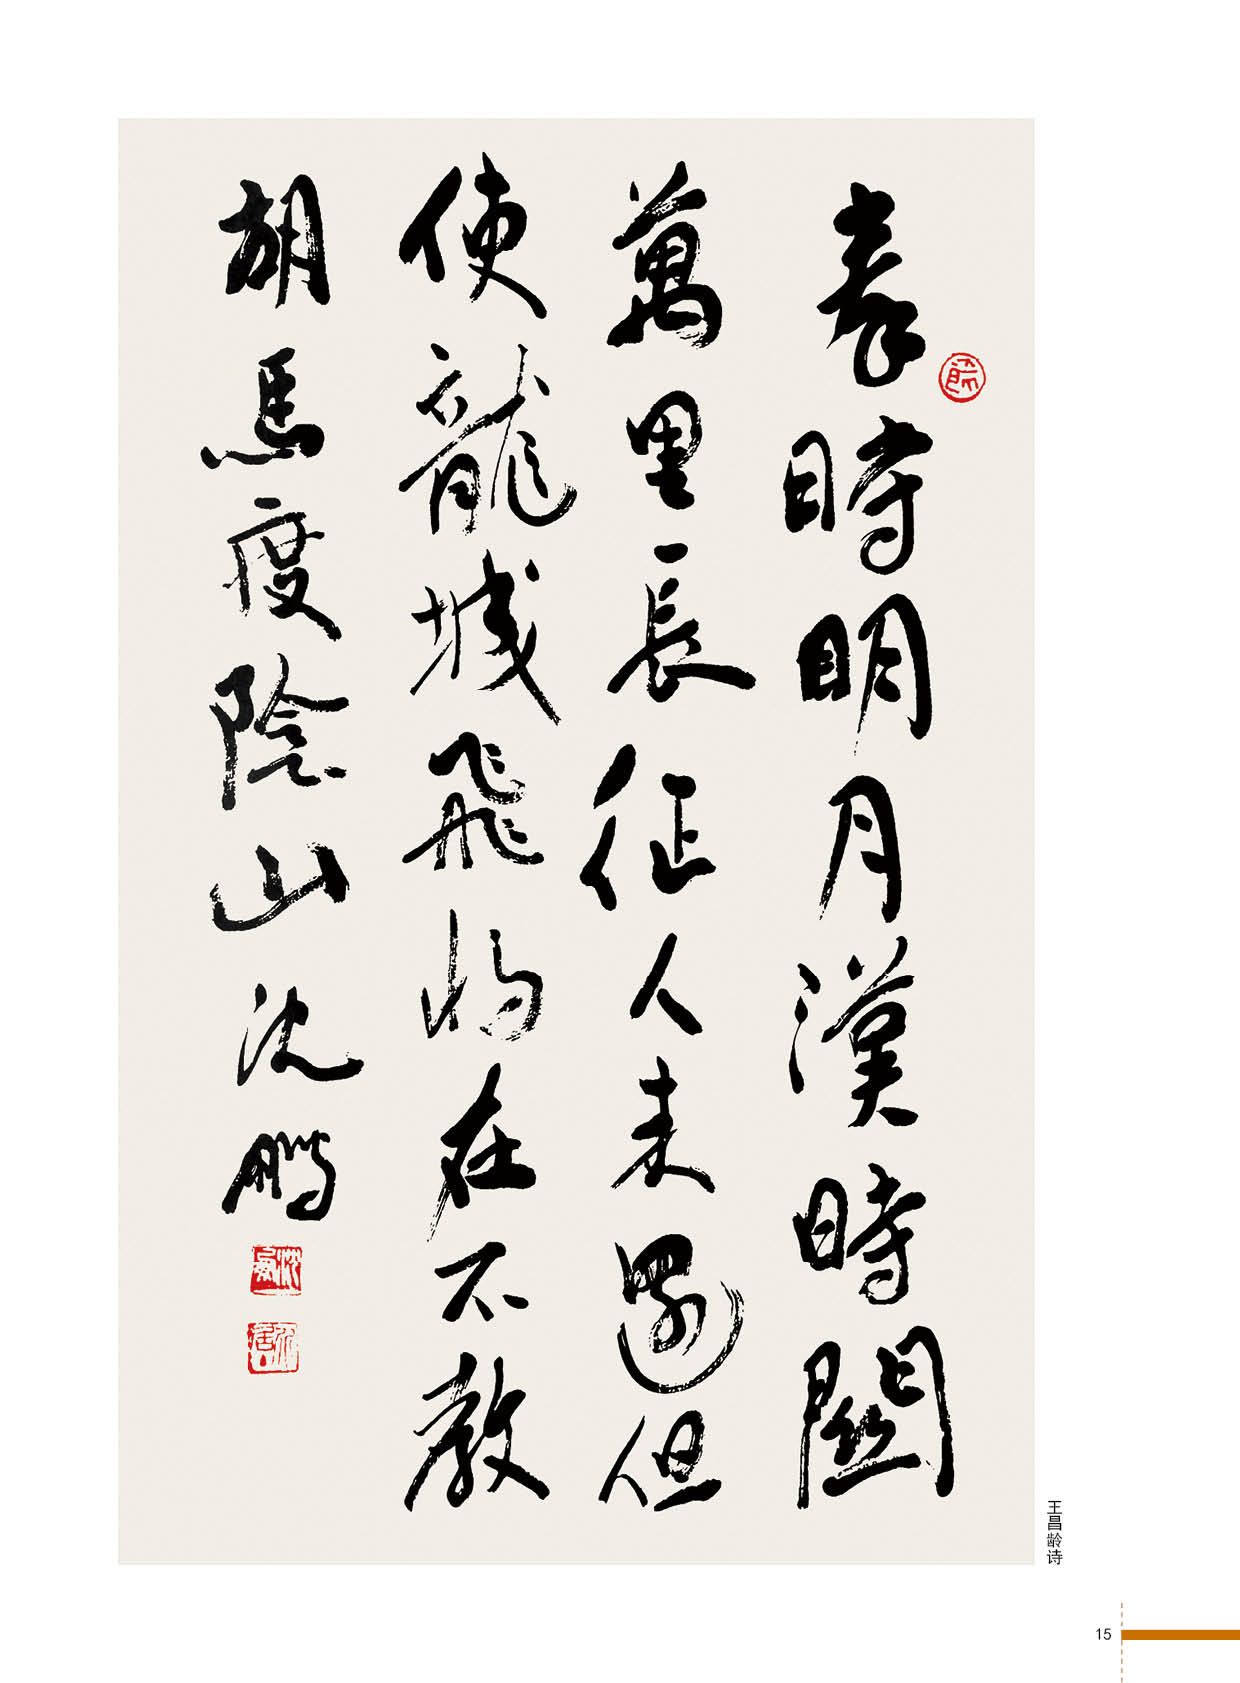 秦時明月漢時關
萬里長征人未還但
使龍城飛将在不教
胡馬度陰山沈鵬
王昌龄诗
15